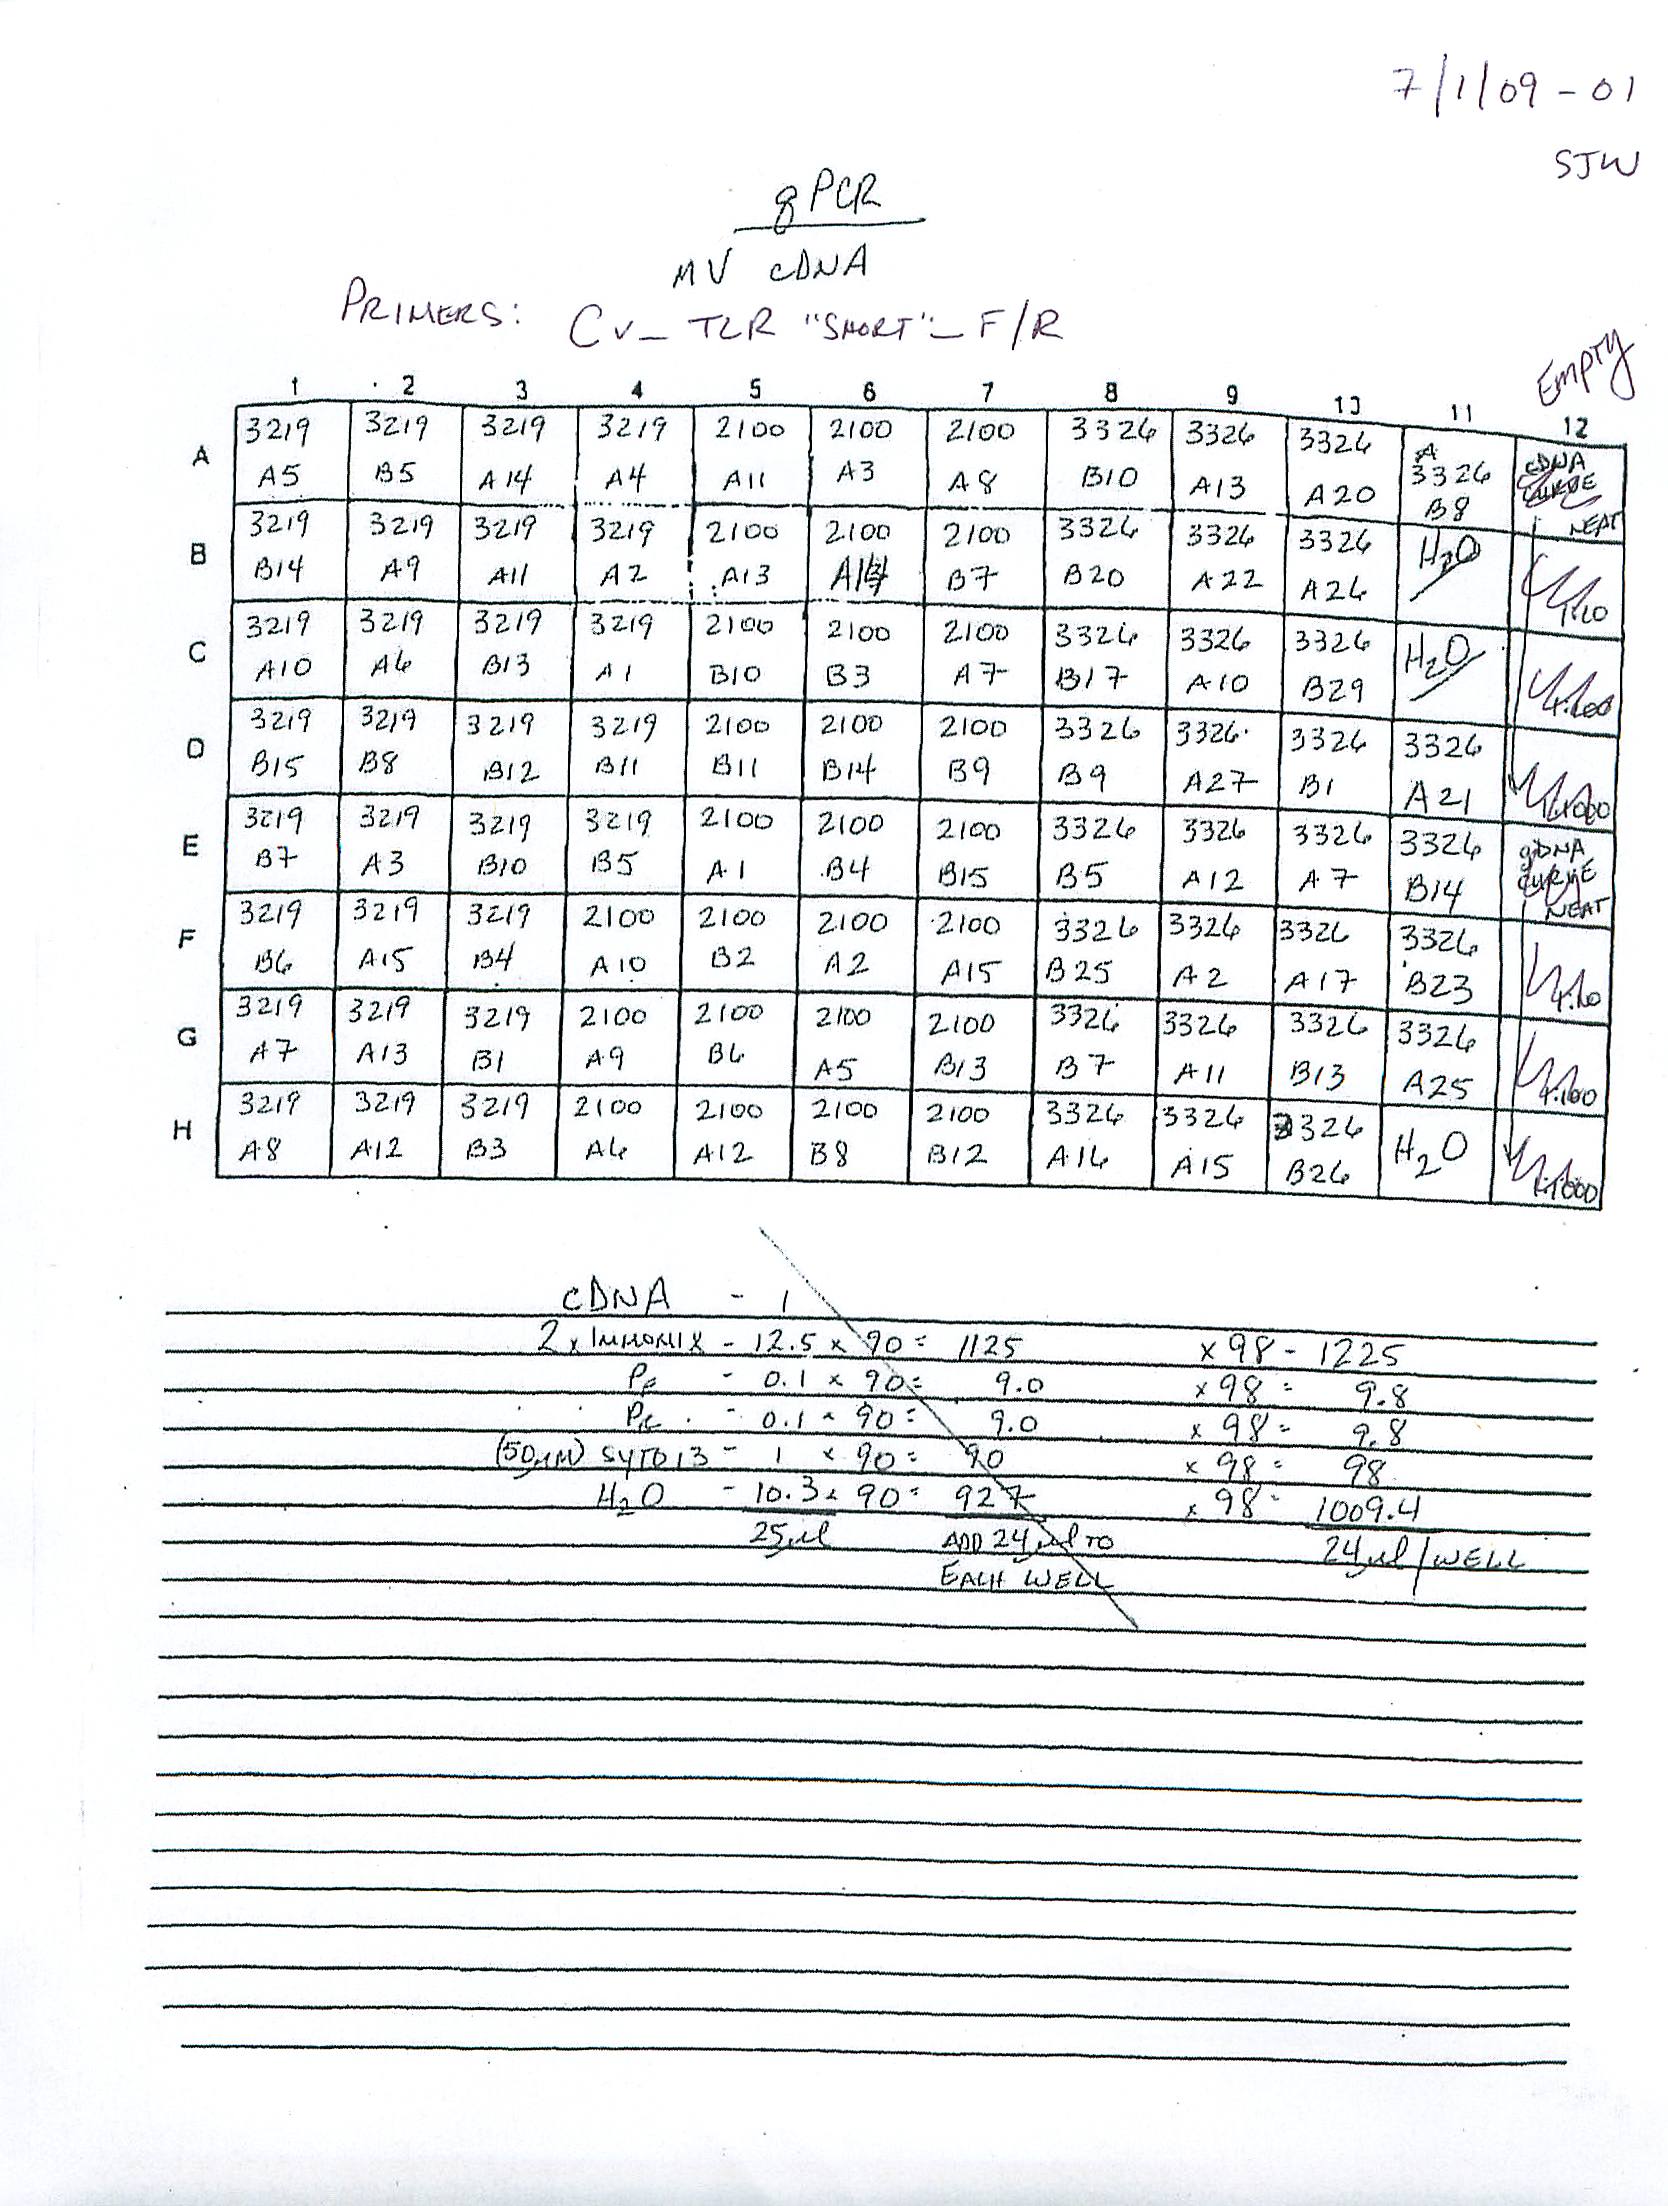 7/1/09 - 01
SJW
qPCR
MV cDNA
PRIMERS: Cv_TLR "SHORT"_F/R
EMPTY
1 2 3 4 5 6 7 8 9 10 11 12
A 3219 3219 3219 3219 2100 2100 2100 3326 3326 3326 3326 cDNA CURVE
A5 B5 A14 A4 A11 A3 A8 B10 A13 A20 B8 NEAT
B 3219 3219 3219 3219 2100 2100 2100 3326 3326 3326 H2O
B14 A9 A11 A2 A13 B7 B20 A22 A26 1:10
C 3219 3219 3219 3219 2100 2100 2100 3326 3326 3326 H2O
A10 A6 B13 A1 B10 B3 A7 B17 A10 B29 1:100
D 3219 3219 3219 3219 2100 2100 2100 3326 3326 3326 3326
B15 B8 B12 B11 B11 B14 B9 B9 A27 B1 A21 1:1000
E 3219 3219 3219 3219 2100 2100 2100 3326 3326 3326 3326 gDNA CURVE
B7 A3 B10 B5 A1 B4 B15 B5 A12 A7 B14 NEAT
F 3219 3219 3219 2100 2100 2100 2100 3326 3326 3326 3326
B6 A15 B4 A10 B2 A2 A15 B25 A2 A17 B23 1:10
G 3219 3219 3219 2100 2100 2100 2100 3326 3326 3326 3326
A7 A13 B1 A9 B6 A5 B13 B7 A11 B13 A25 1:100
H 3219 3219 3219 2100 2100 2100 2100 3326 3326 3326 H2O
A8 A12 B3 A6 A12 B8 B12 A16 A15 B26 1:1000
cDNA - 1
2x IMMOMIX - 12.5 x 90 = 1125 x 98 - 1225
PF - 0.1 x 90 = 9.0 x 98 = 9.8
PR - 0.1 x 90 = 9.0 x 98 = 9.8
(50µM) SYTO13 - 1 x 90 = 90 x 98 = 98
H2O - 10.3 x 90 = 927 x 98 = 1009.4
25µl ADD 24µl TO 24µl/WELL
EACH WELL